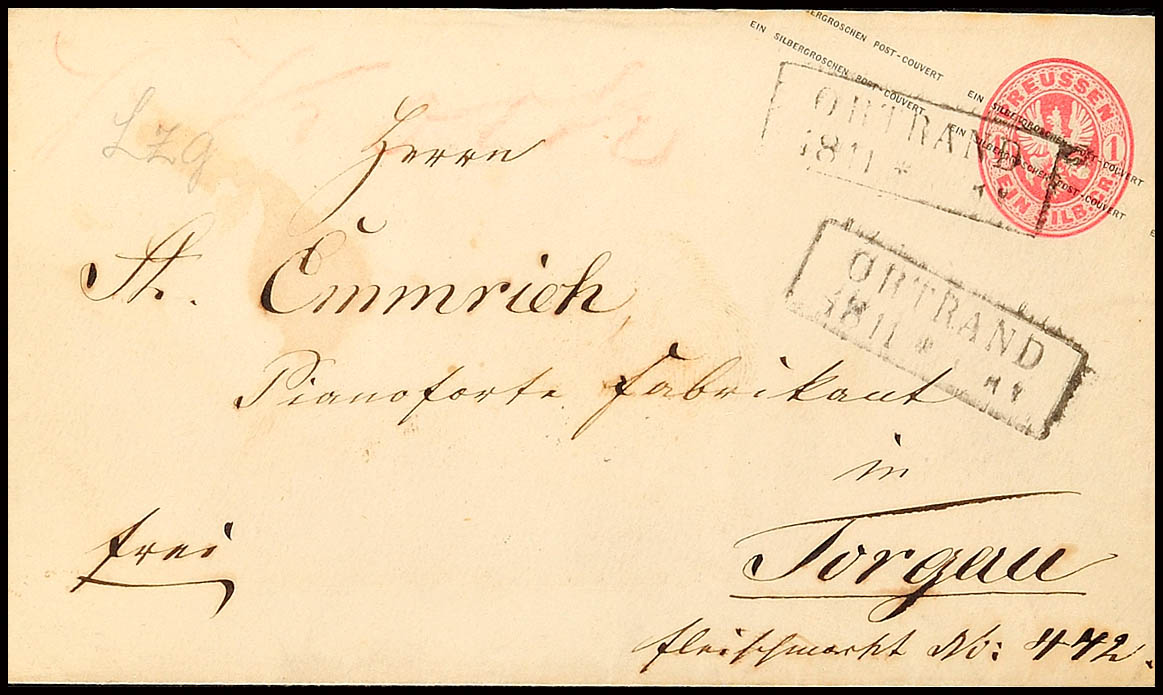 SILBERGROSCHEN POST-COUVERT
EIN SILBERGROSCHEN POST-COUVERT
EIN SILBERGROSCHEN POST-COUVERT
EIN SILBERGROSCHEN POST-COUVERT
PREUSSEN
1 1
EIN SILB. GR.
ORTRAND
18 11 *
ORTRAND
18 11 *
Lzg
Herrn
St. Emmrich
Pianoforte Fabrikant
in
Torgau
frei
Fleischmarkt No: 442.